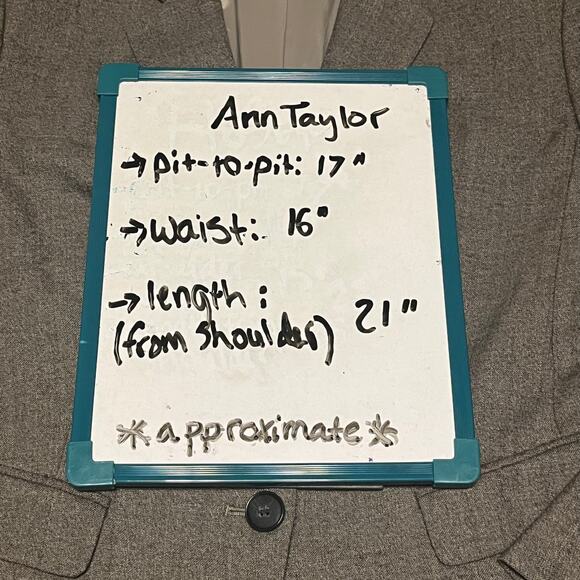 Ann Taylor
→ pit-to-pit: 17"
→ waist: 16"
→ length:
(from shoulder) 21"
* approximate *